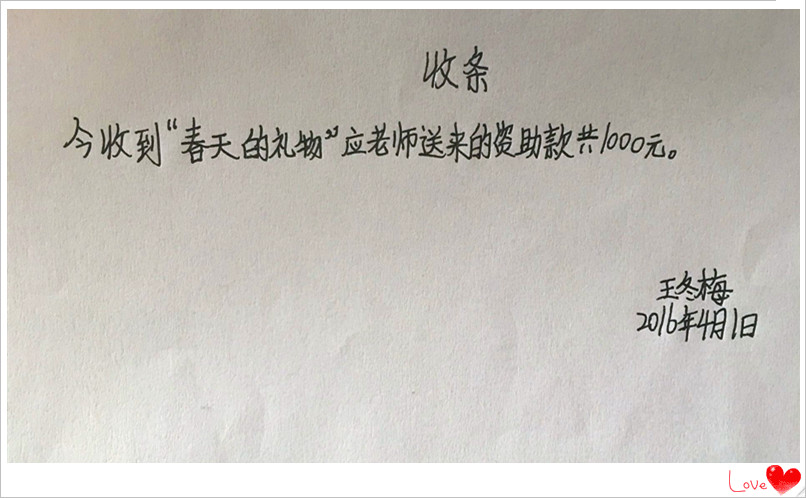 收条
今收到“春天的礼物”应老师送来的资助款共1000元。
王冬梅
2016年4月1日
Love